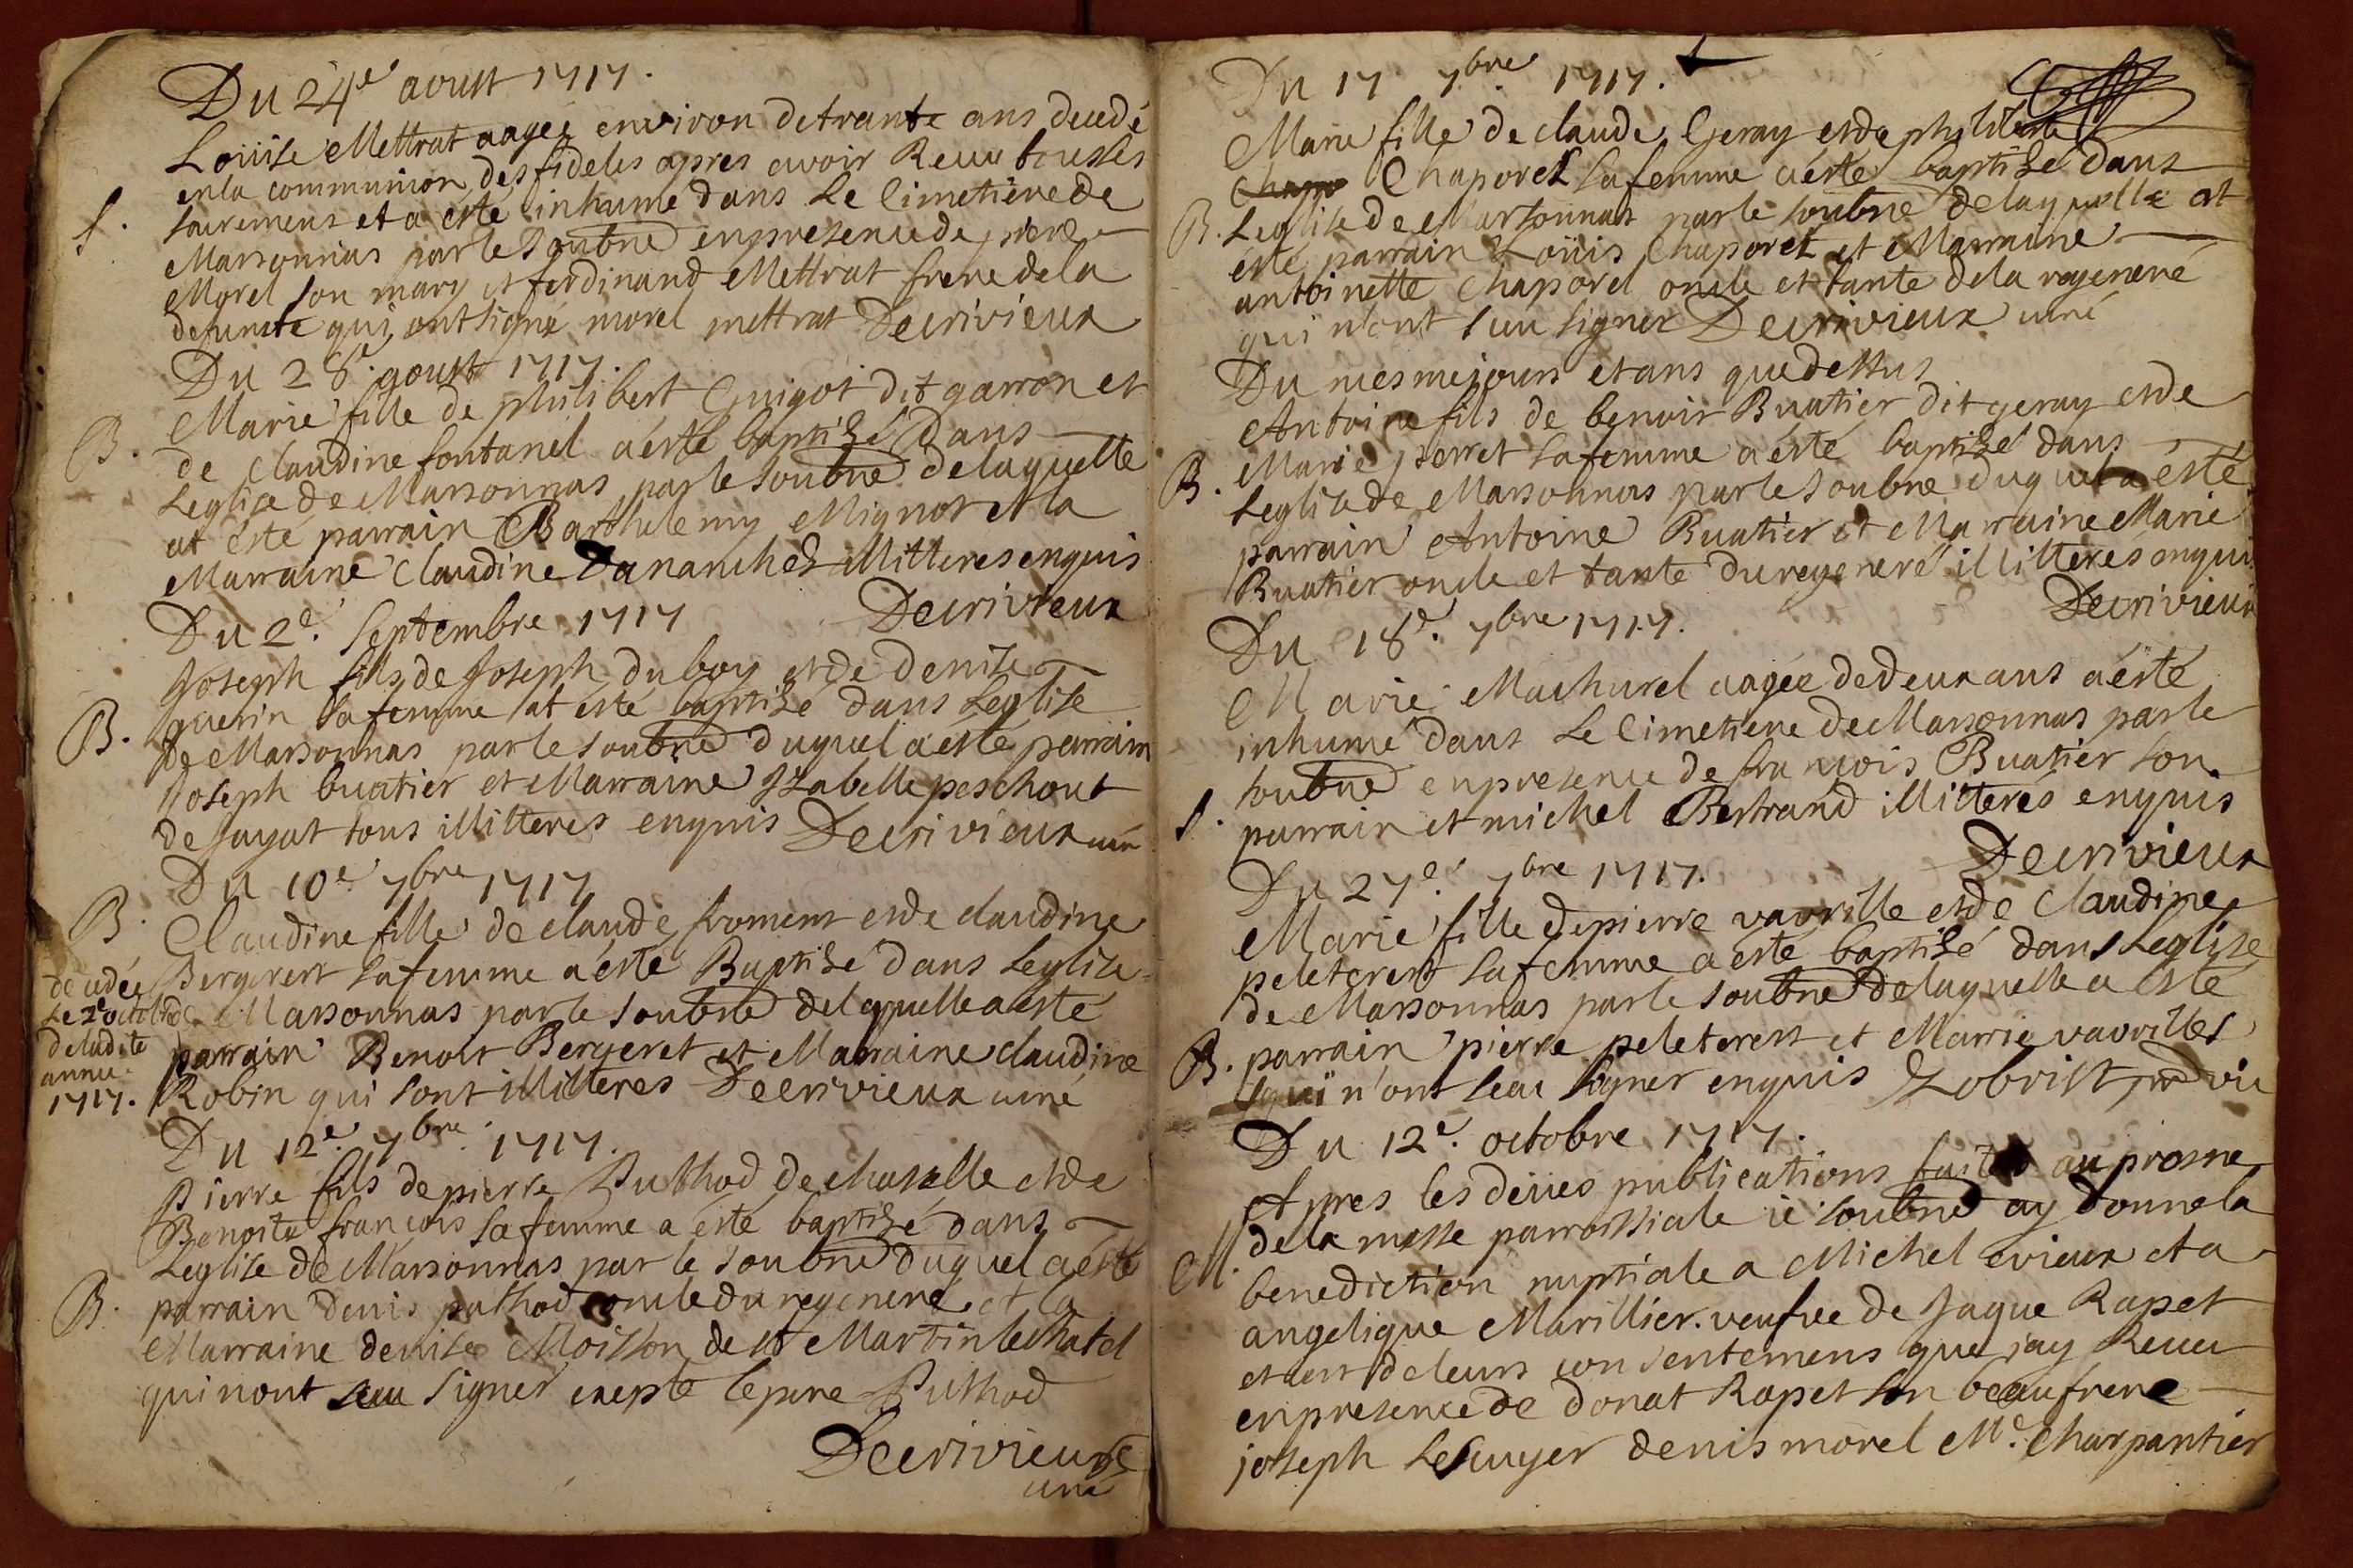 Du 24e aoust 1717.
Loüise Mettrat aagée environ de trante ans decedé
en la communion des fideles apres avoir Receu tous les
S. sacremens et a esté inhumé dans le Cimetiere de
Marsonnas par le soubné en presence de pierre
Morel son mary et ferdinand Mettrat frere de la
defuncte qui ont signé morel mettrat Decrivieux
Du 28e aoust 1717.
Marie fille de philibert Guigot dit garron et
B. de Claudine fontanel a esté baptisé dans
Leglise de Marsonnas par le soubné de laquelle
at esté parrain Barthelemy Mignot et la
Marraine Claudine Dananches illitteres enquis
Decrivieux
Du 2e. Septembre 1717
Joseph fils de Joseph du boy et de denise
guerin sa femme at esté baptisé dans Leglise
B. de Marsonnas par le soubné duquel a esté parrain
Joseph buatier et Marraine Izabelle peschout
de Jayat tous illitteres enquis Decrivieux curé
Du 10e 7bre 1717
B. Claudine fille de claude froment et de claudine
Bergeret sa femme a esté Baptisé dans Leglise
de Marsonnas par le soubné de laquelle a esté
parrain Benoit Bergeret et Marraine claudine
Robin qui sont illitteres Decrivieux curé
decedée
le 2e octobre
de ladite
année
1717.
Du 12e. 7bre. 1717.
Pierre fils de pierre Puthod de chaselle et de
Benoite francois sa femme a esté baptisé dans
Leglise de Marsonnas par le soubné duquel a esté
B. parrain denis puthod oncle du regeneré et la
Marraine denise Moisson de st Martin le chatel
qui n'ont sceu signer exepté le pere Puthod
Decrivieux
curé
Du 17 7bre 1717.
Marie fille de claude Geray et de philiberte
Chapo Chaporet sa femme a esté baptisé dans
B. Leglise de Marsonnas par le soubné de laquelle at
esté parrain Loüis Chaporet et Marraine
antoinette Chaporet oncle et tante de la regeneré
qui n'ont sceu signer Decrivieux curé
Du mesme jours et ans que dessus
Antoine fils de benoit Buatier dit geray et de
Marie perret sa femme a esté baptisé dans
B. Leglise de Marsonnas par le soubné duquel a esté
parrain Antoine Buatier et Marraine Marie
Buatier oncle et tante du regeneré illitteres enquis
Decrivieux
Du 18e. 7bre 1717.
Marie Machurel aagée de deux ans a esté
inhumé dans le Cimetiere de Marsonnas par le
soubné en presence de francois Buatier son
S. parrain et michel Bertrand illitteres enquis
Decrivieux
Du 27e. 7bre 1717.
Marie fille de pierre vavrille et de Claudine
peleteret sa femme a esté baptisé dans Leglise
de Marsonnas par le soubné de laquelle a esté
B. parrain pierre peleteret et Marrie vavrilles
qui n'ont sceu signer enquis Lobrist vic
Du 12e. octobre 1717.
Apres les deües publications faites au prosne
de la messe parroissiale ie soubné ay donné la
M. benediction nuptiale a Michel evieux et a
angelique Marillier veufve de Jaque Rapet
et de leurs consentemens que jay Receu
en presence de donat Rapet son beaufrere
joseph Lescuyer denis morel Me. Charpantier